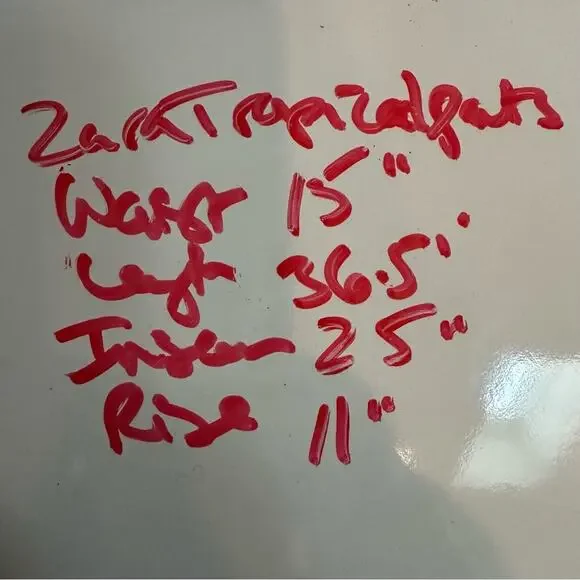 Zara Tropical pants
Waist 15"
Length 36.5"
Inseam 25"
Rise 11"